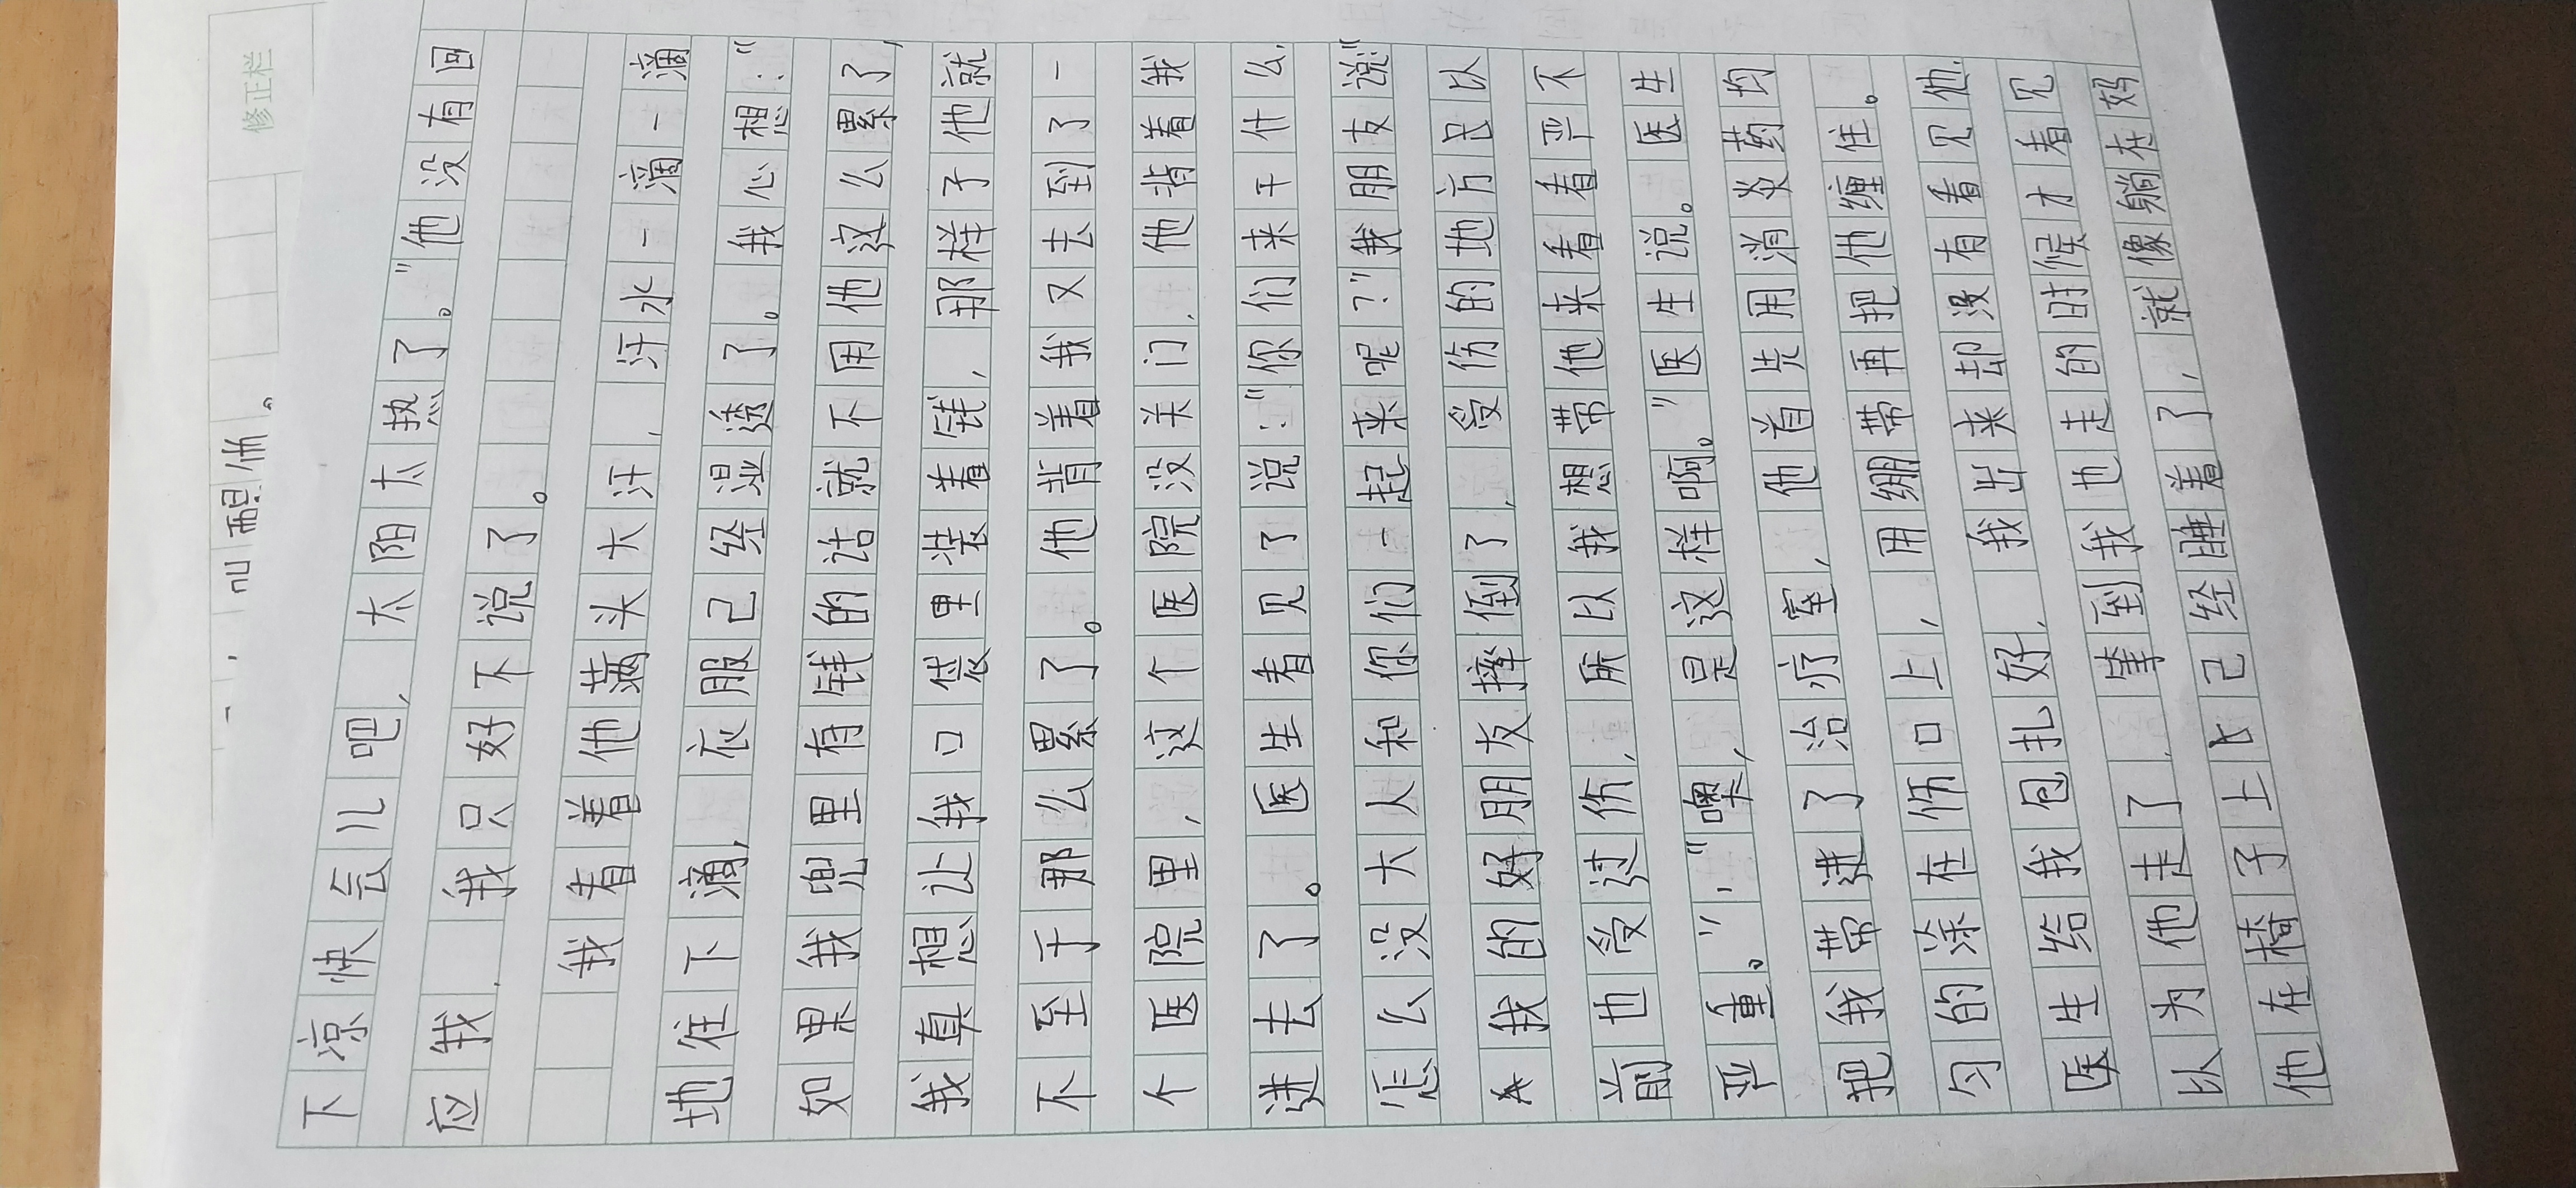 修正栏
叫醒他。
下凉快会儿吧,太阳太热了。"他没有回
应我,我只好不说了。
我看着他满头大汗,汗水一滴一滴
地往下滴,衣服已经湿透了。我心想:"
如果我兜里有钱的话就不用他这么累了,
我真想让我口袋里装着钱,那样子他就
不至于那么累了。他背着我又去到了一
个医院里,这个医院没关门,他背着我
进去了。医生看见了说:"你们来干什么,
怎么没大人和你们一起来呢?"我朋友说:"
我的好朋友摔倒了,受伤的地方以
前也受过伤,所以我想带他来看看严不
严重。","噢,是这样啊。"医生说。医生
把我带进了治疗室,他首先用消炎药均
匀的涂在伤口上,用绷带再把他缠住。
医生给我包扎好,我出来却没有看见他,
以为他走了,等到我也走的时候才看见
他在椅子上已经睡着了,就像躺在妈